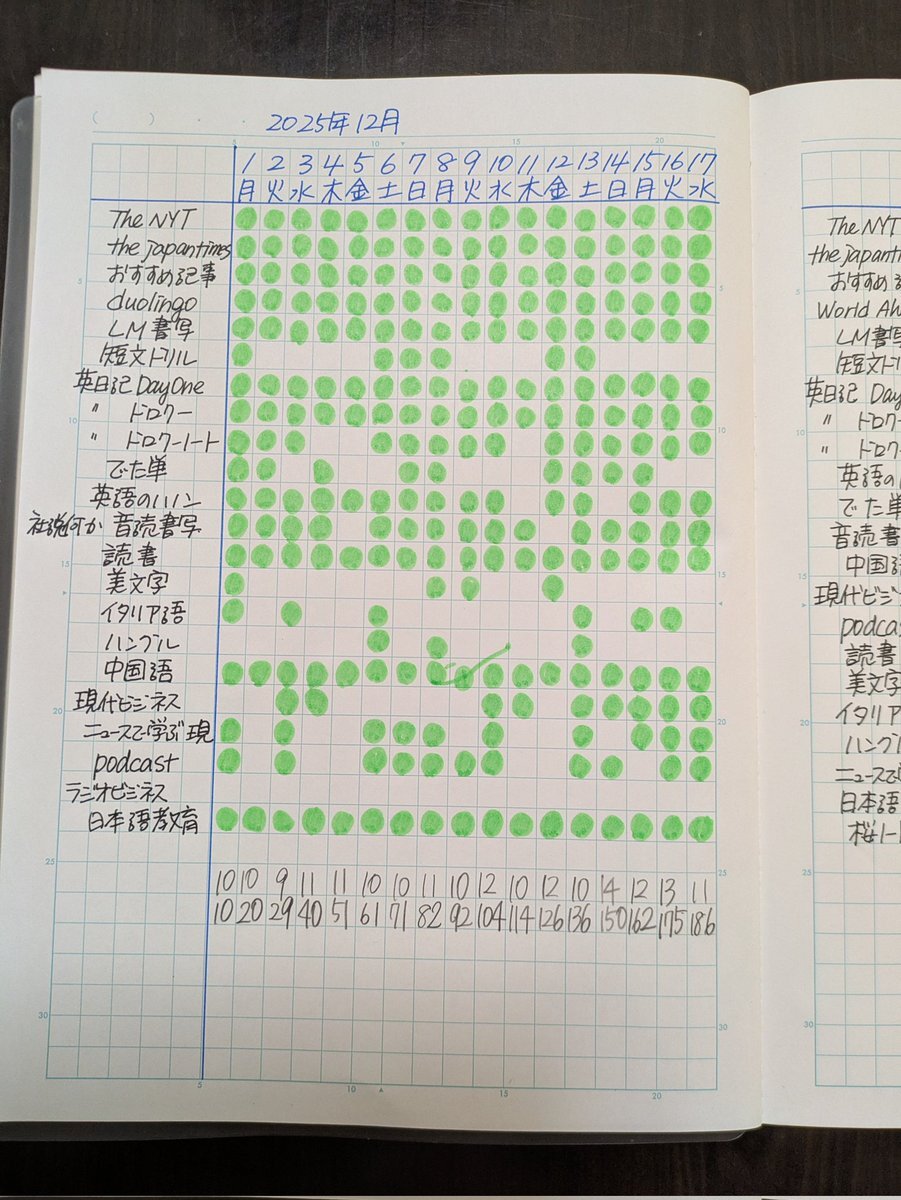 2025年12月
1 2 3 4 5 6 7 8 9 10 11 12 13 14 15 16 17
月 火 水 木 金 土 日 月 火 水 木 金 土 日 月 火 水
The NYT
the japantimes
おすすめ記事
duolingo
LM書写
短文ドリル
英日記 DayOne
〃 ドロワー
〃 ドロワーノート
でた単
英語のハノン
社説何か 音読書写
読書
美文字
イタリア語
ハングル
中国語
現代ビジネス
ニュースで学ぶ現
podcast
ラジオビジネス
日本語教育
10 10 9 11 11 10 10 11 10 12 10 12 10 14 12 13 11
10 20 29 40 51 61 71 82 92 104 114 126 136 150 162 175 186
5 10 15 20
5
10
15
20
25
30
5
15
20
30
5 10 15 20
The NYT
the japanti
おすすめ記
World Ah
LM書写
短文ドリ
英日記 Day
〃 ドロワー
〃 ドロワー
英語の
でた単
音読書
中国語
現代ビジ
podca
読書
美文字
イタリア
ハング
ニュース
日本語
桜ノー
5
10
15
20
25
30